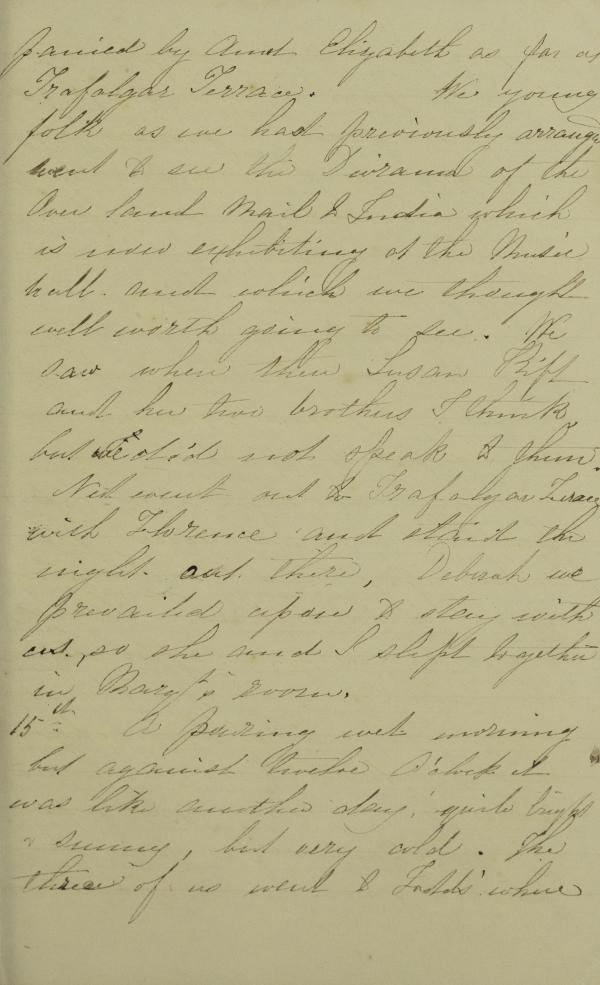 panied by Aunt Elizabeth as far as
Trafalgar Terrace. We young
folk as we had previously arrang
went to see the Diorama of the
Over land Mail to India which
is now exhibiting at the Music
hall. and which we thought
well worth going to see. We
saw when there Susan
and her two brothers I think
but did not speak to them.
Ned went out to Trafalgar Terrace
with Florence and staid the
night out there, Deborah we
prevailed upon to stay with
us, so she and I slept together
in Margt's room.
15th A pouring wet morning
but against twelve O'clock it
was like another day, quite bright
& sunny, but very cold. The
three of us went to Todds' where